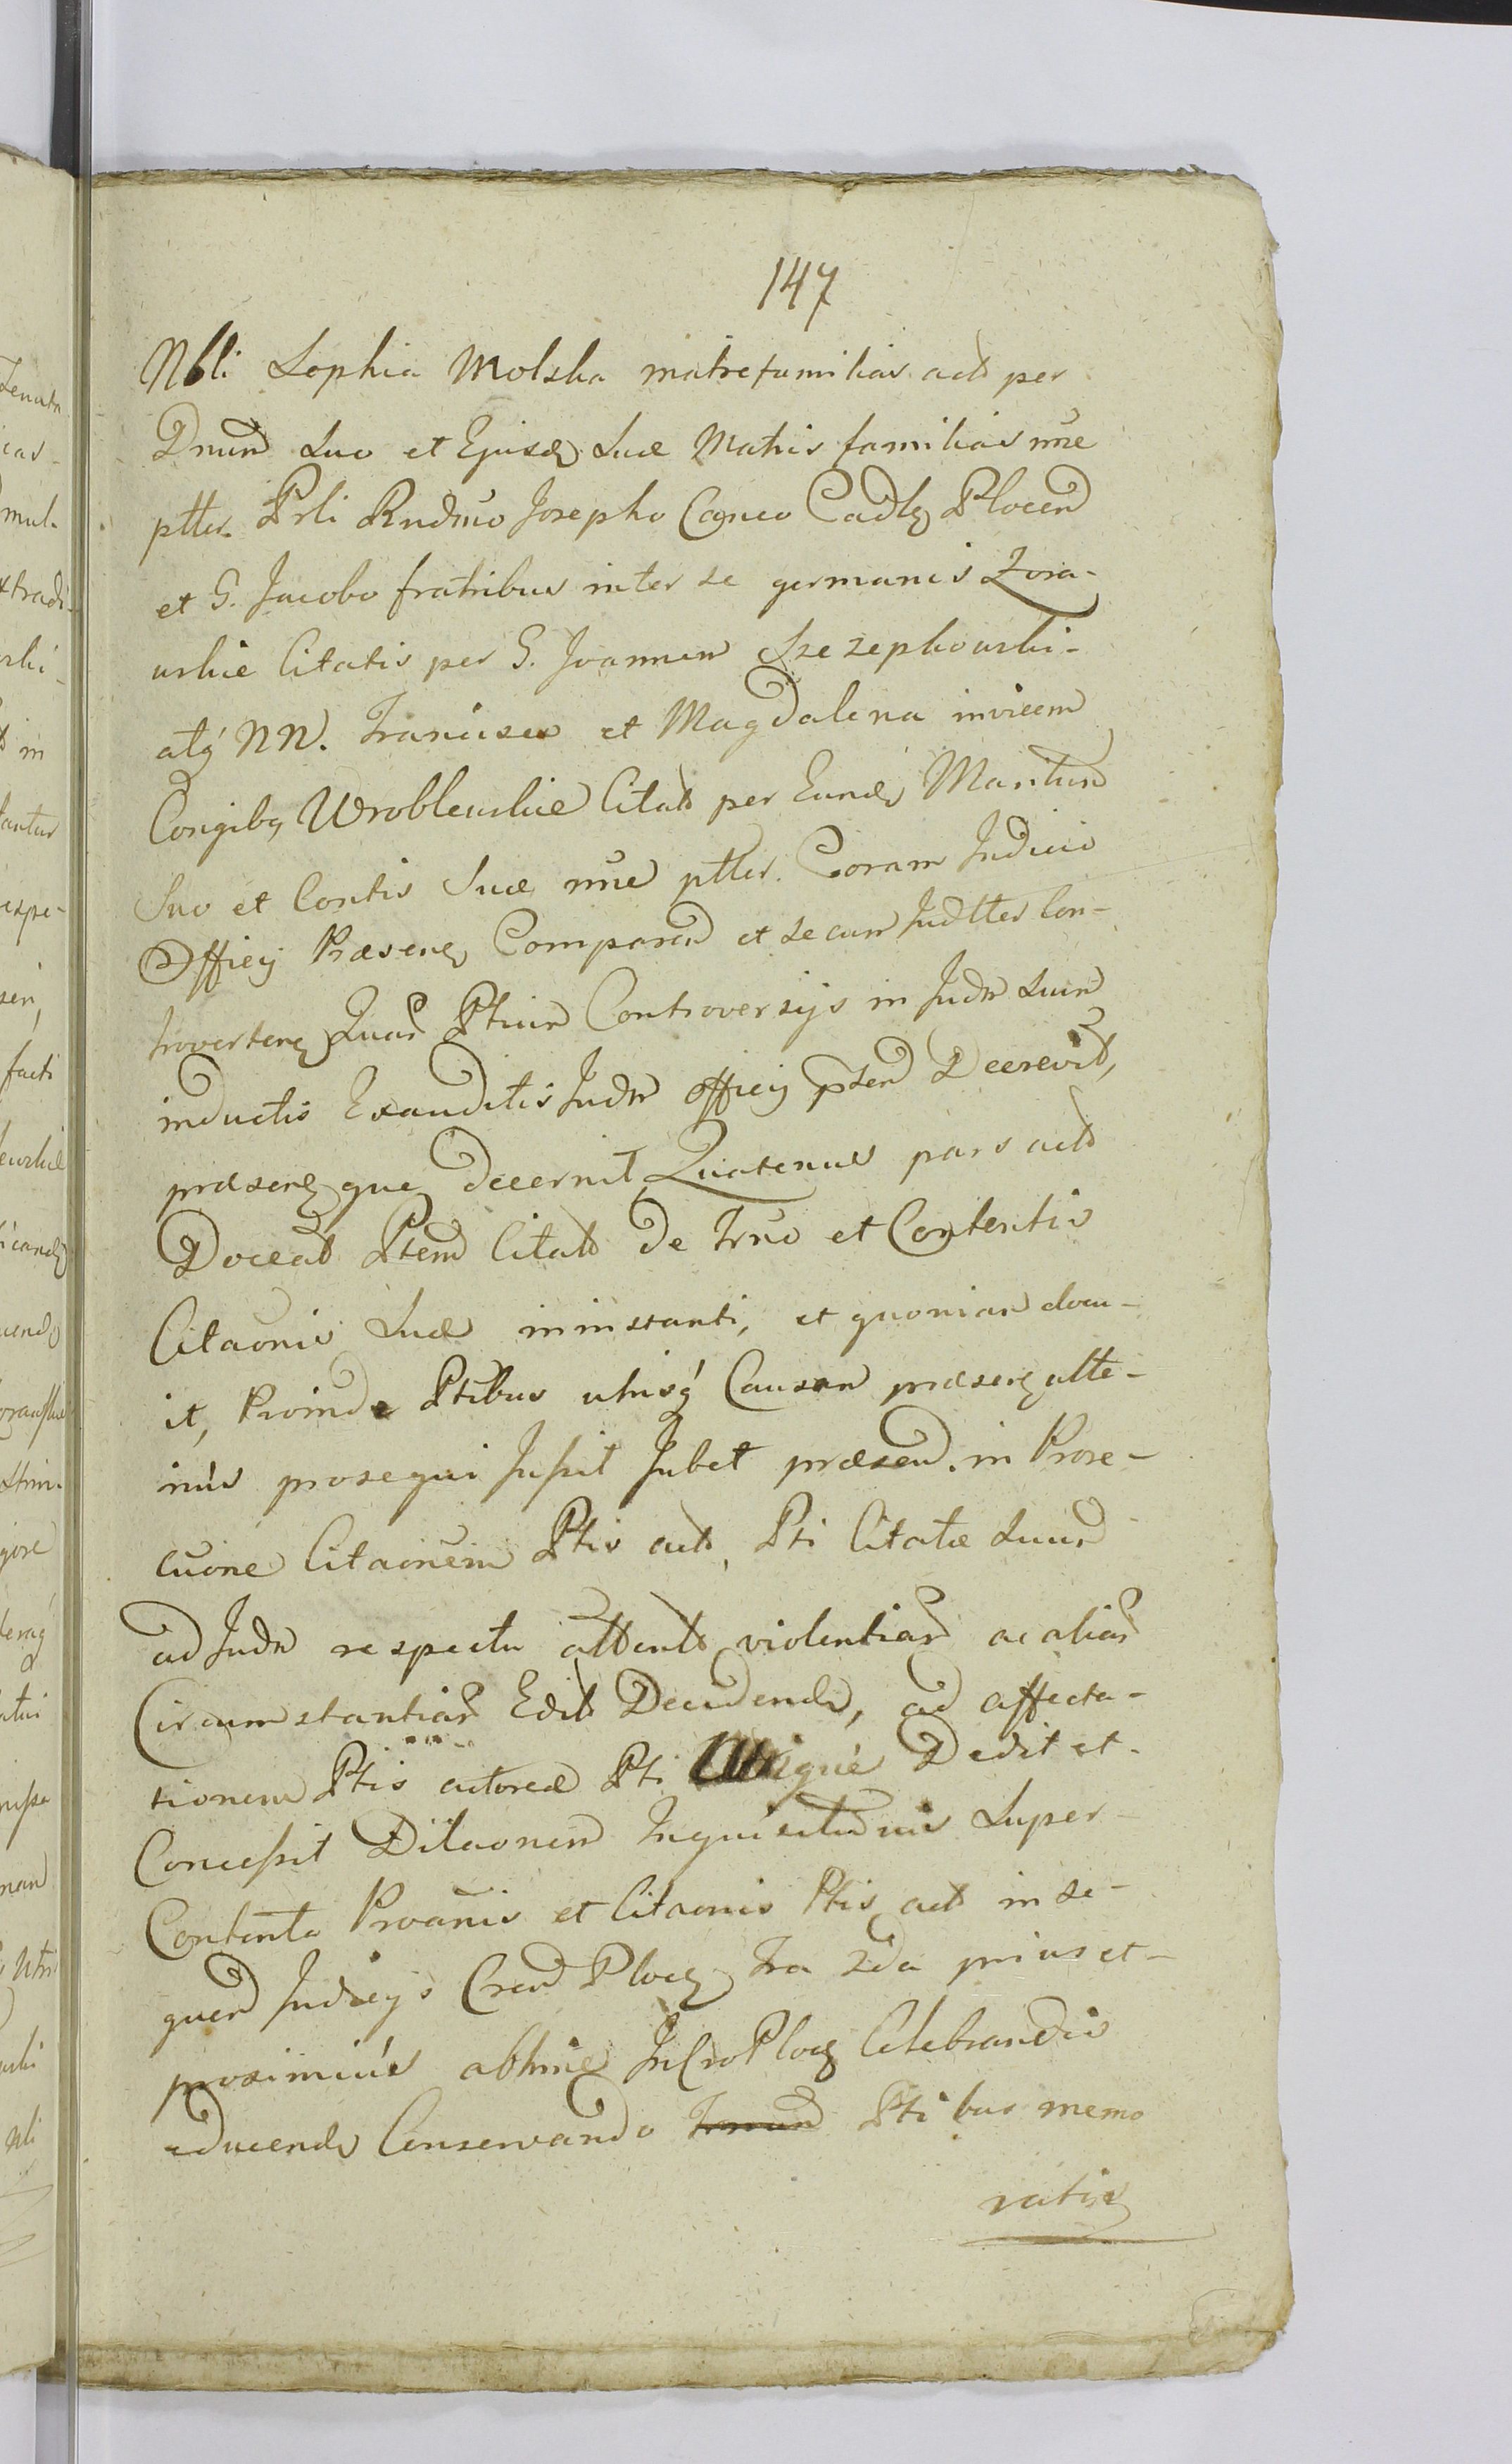 147
Nbli Sophia Molska matrefamilias actt per
Dnum Suo et Ejusd Suæ Matris familias nne
ptter. Prli Rndmo Josepho Canco Cadlɇ Plocen
et G. Jacobo fratribus inter se germanis Zora-
wskie Citatis per G. Joannem Szczepkowski-
atq́ NN. Francisco et Magdalena invicem
Congibq Wroblewskie Citatt per Eund Maritum
Suo et Contis Suæ nne ptter. Coram Judicio
Officij Præsenɇ Comparen et secum Judtter Con-
troverten Quar Ptium Controversijs in Judm Suum
inductis Exauditis Judm Officij pten Decrevit,
præsenɇque decernit, Quatenus pars actt
Doceat Ptem Citatt de Trno et Contentis
Citaonis Suæ ininstanti, et quoniam docu-
it, Proinde Ptibus utrisq́ Causam præsenɇ ulte-
rius prosequi Jussit Jubet præsen. in Prose-
cuone Citaonem Ptis actt, Pti Citatæ Suum
ad Judm respectu attentt violentiar ac aliar
Circumstantiar Edit Deudend, ad affecta-
tionem Ptis actoreæ Pti Utrique Dedit et-
Concessit Dilaonem Inquisitionis Super-
Contenta Proanis et Citaonis Ptis actt in se-
quen Judicijs Cren Plocɇ Fra 2da prius et-
proximius abhinc In Cro Plocɇ Celebrandis
educend Conservando Trnum Ptibus memo
ratis